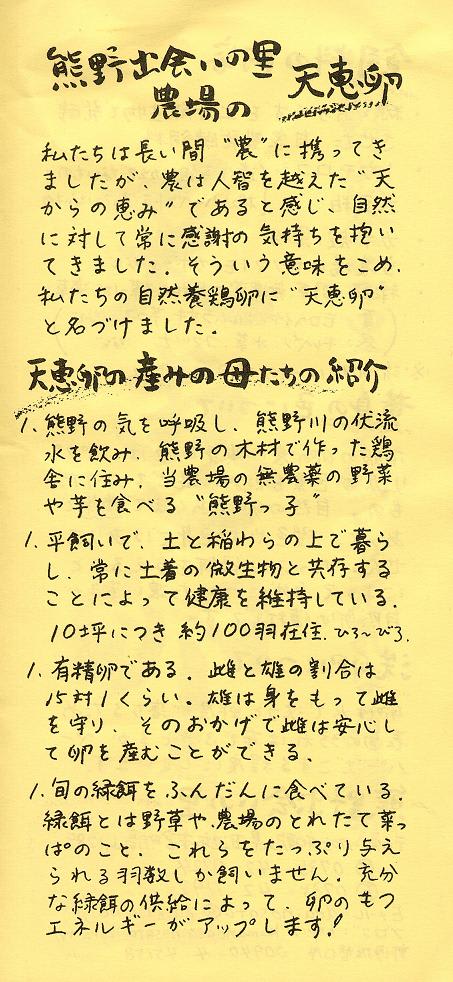 熊野出会いの里
農場の
天恵卵
私たちは長い間“農”に携ってき
ましたが、農は人智を越えた“天
からの恵み”であると感じ、自然
に対して常に感謝の気持ちを抱い
てきました。そういう意味をこめ、
私たちの自然養鶏卵に“天恵卵”
と名づけました。
天恵卵の産みの母たちの紹介
1. 熊野の気を呼吸し、熊野川の伏流
水を飲み、熊野の木材で作った鶏
舎に住み、当農場の無農薬の野菜
や芋を食べる“熊野っ子”
1. 平飼いで、土と稲わらの上で暮ら
し、常に土着の微生物と共存する
ことによって健康を維持している。
10坪につき約100羽在住。ひろ〜びろ。
1. 有精卵である。雌と雄の割合は
15対1くらい。雄は身をもって雌
を守り、そのおかげで雌は安心し
て卵を産むことができる。
1. 旬の緑餌をふんだんに食べている。
緑餌とは野草や、農場のとれたて菜っ
ぱのこと、これらをたっぷり与え
られる羽数しか飼いません。充分
な緑餌の供給によって、卵のもつ
エネルギーがアップします!